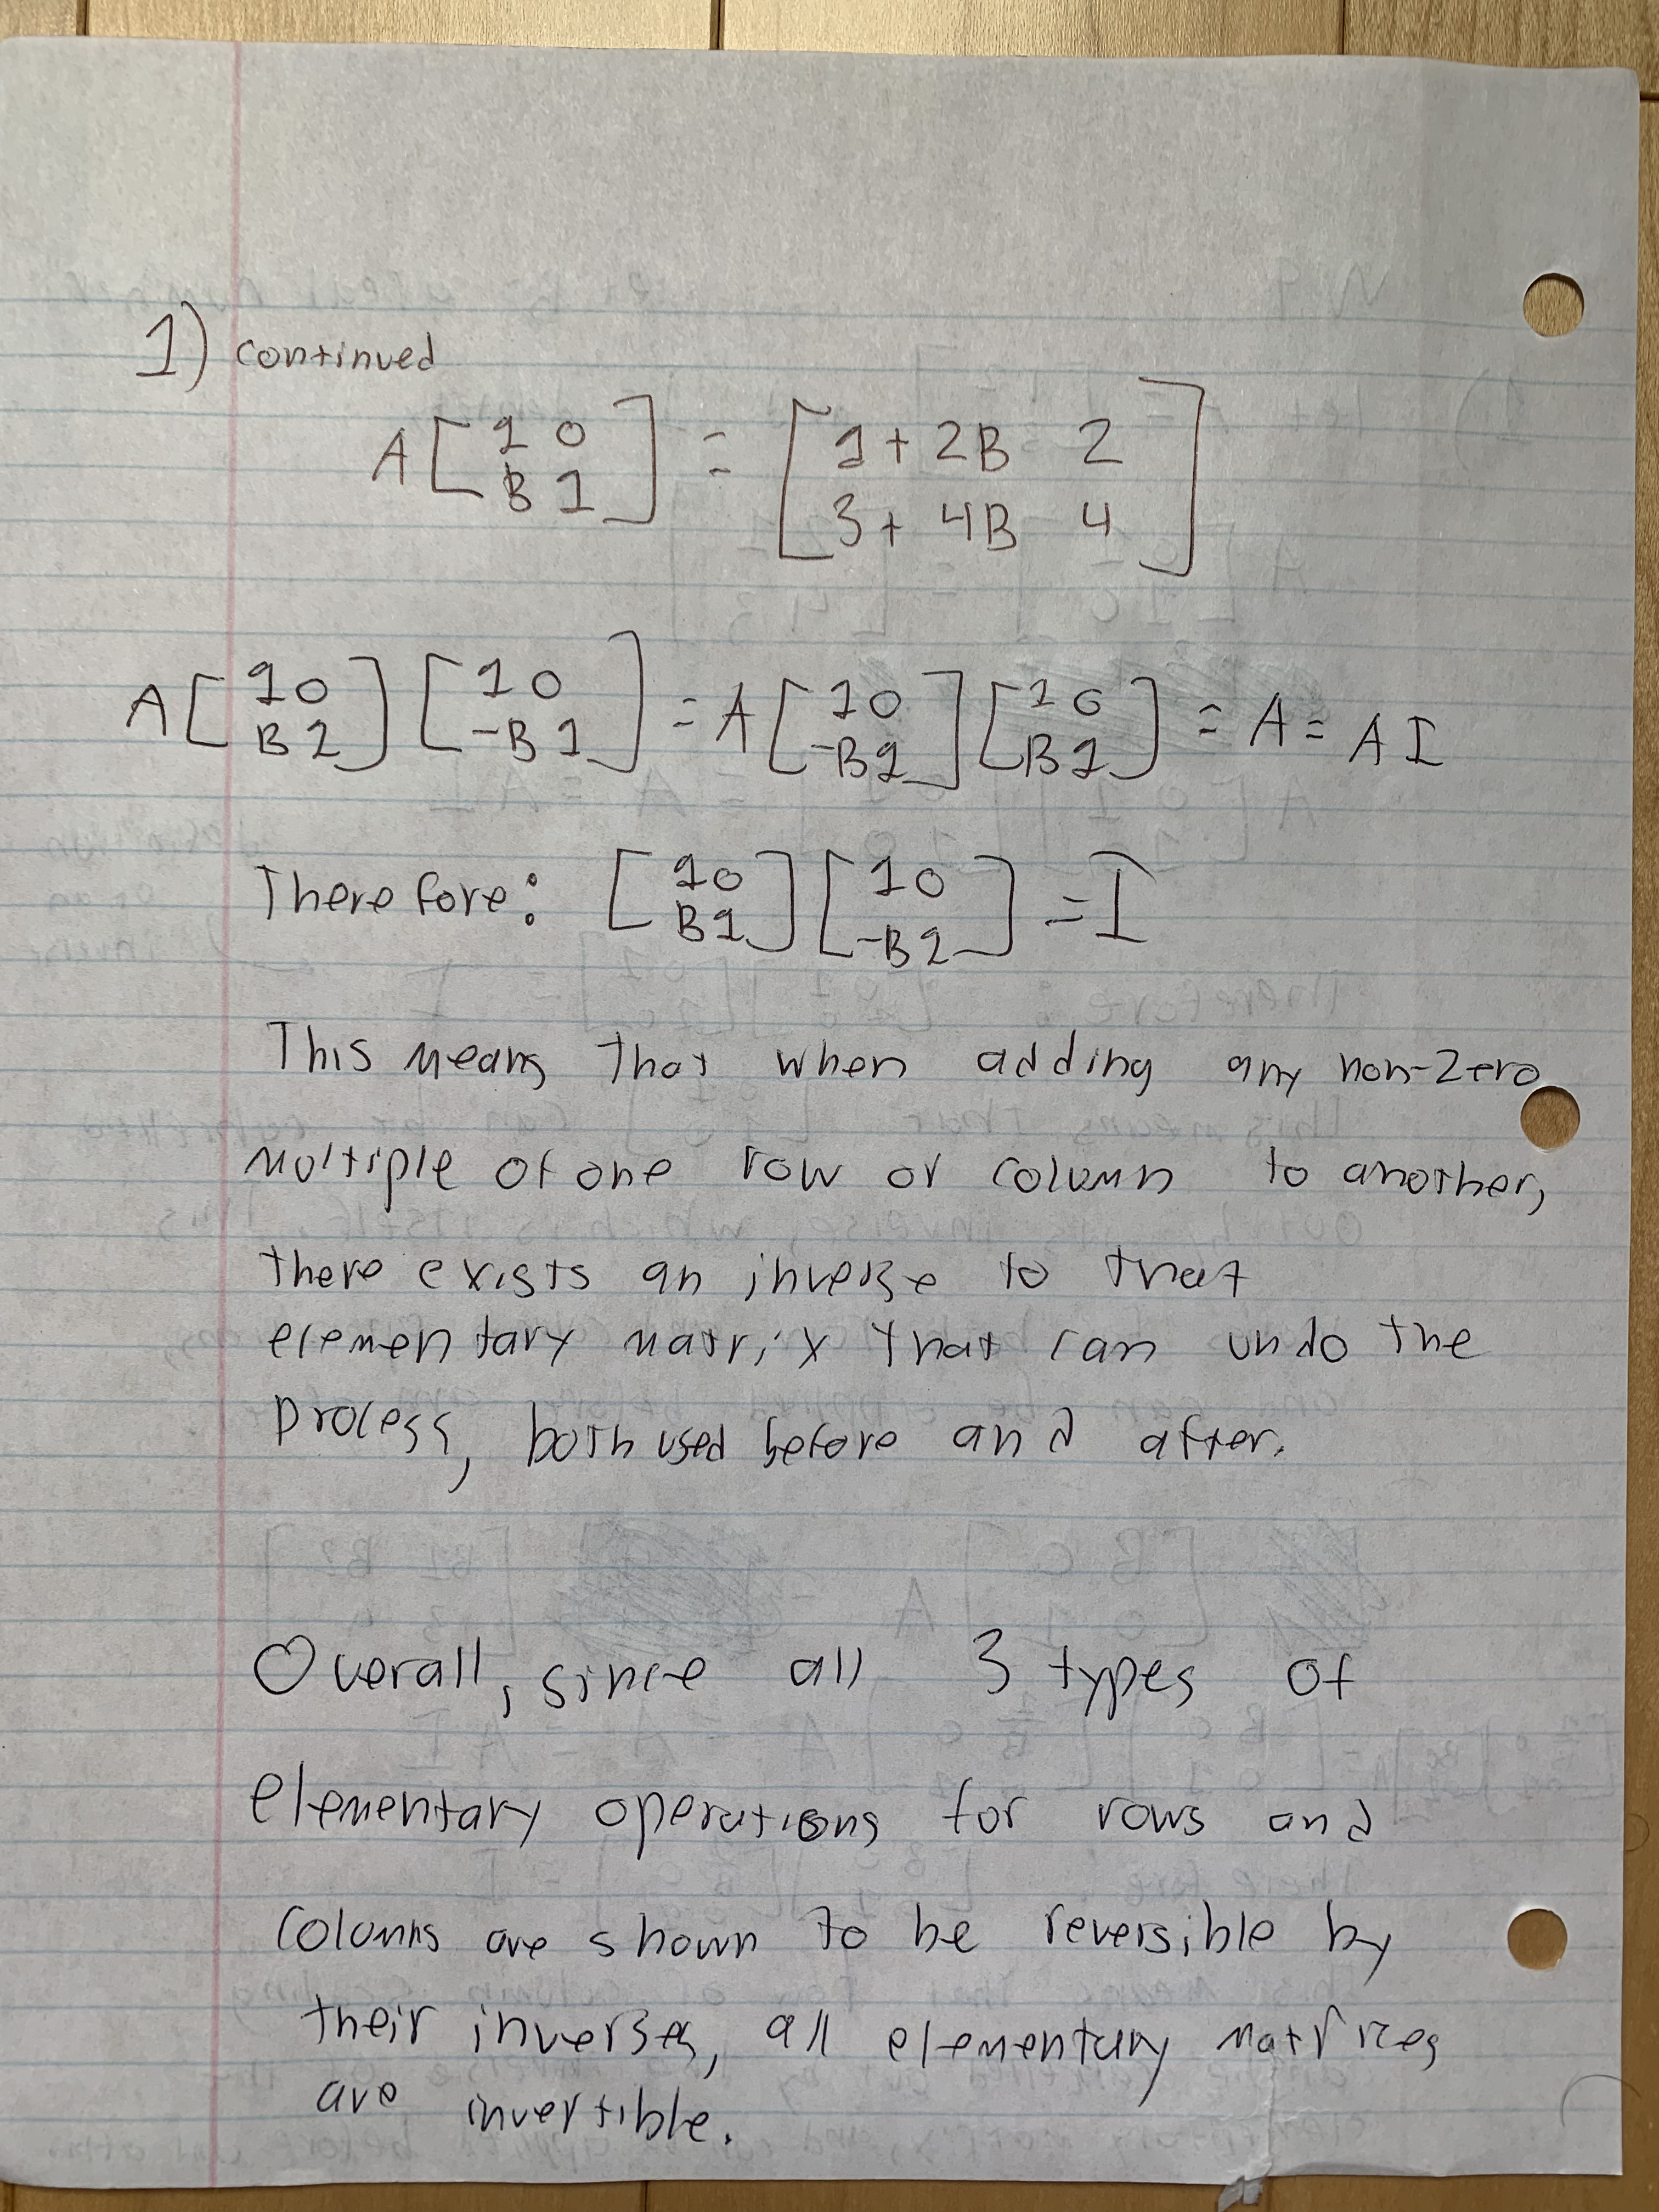 1) continued
A [ 1 0 ] = [ 1 + 2B 2 ]
[ B 1 ] [ 3 + 4B 4 ]
A [ 1 0 ] [ 1 0 ] = A [ 1 0 ] [ 1 0 ] = A = A I
[ B 1 ] [ -B 1 ] [ -B 1 ] [ B 1 ]
Therefore: [ 1 0 ] [ 1 0 ] = I
[ B 1 ] [ -B 1 ]
This means that when adding any non-zero
multiple of one row or column to another,
there exists an inverse to that
elementary matrix that can undo the
process, both used before and after.
Overall, since all 3 types of
elementary operations for rows and
columns are shown to be reversible by
their inverses, all elementary matrices
are invertible.